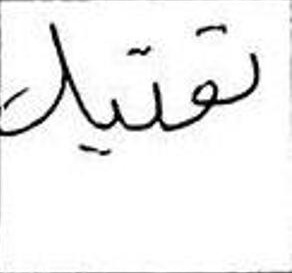 تقتيل